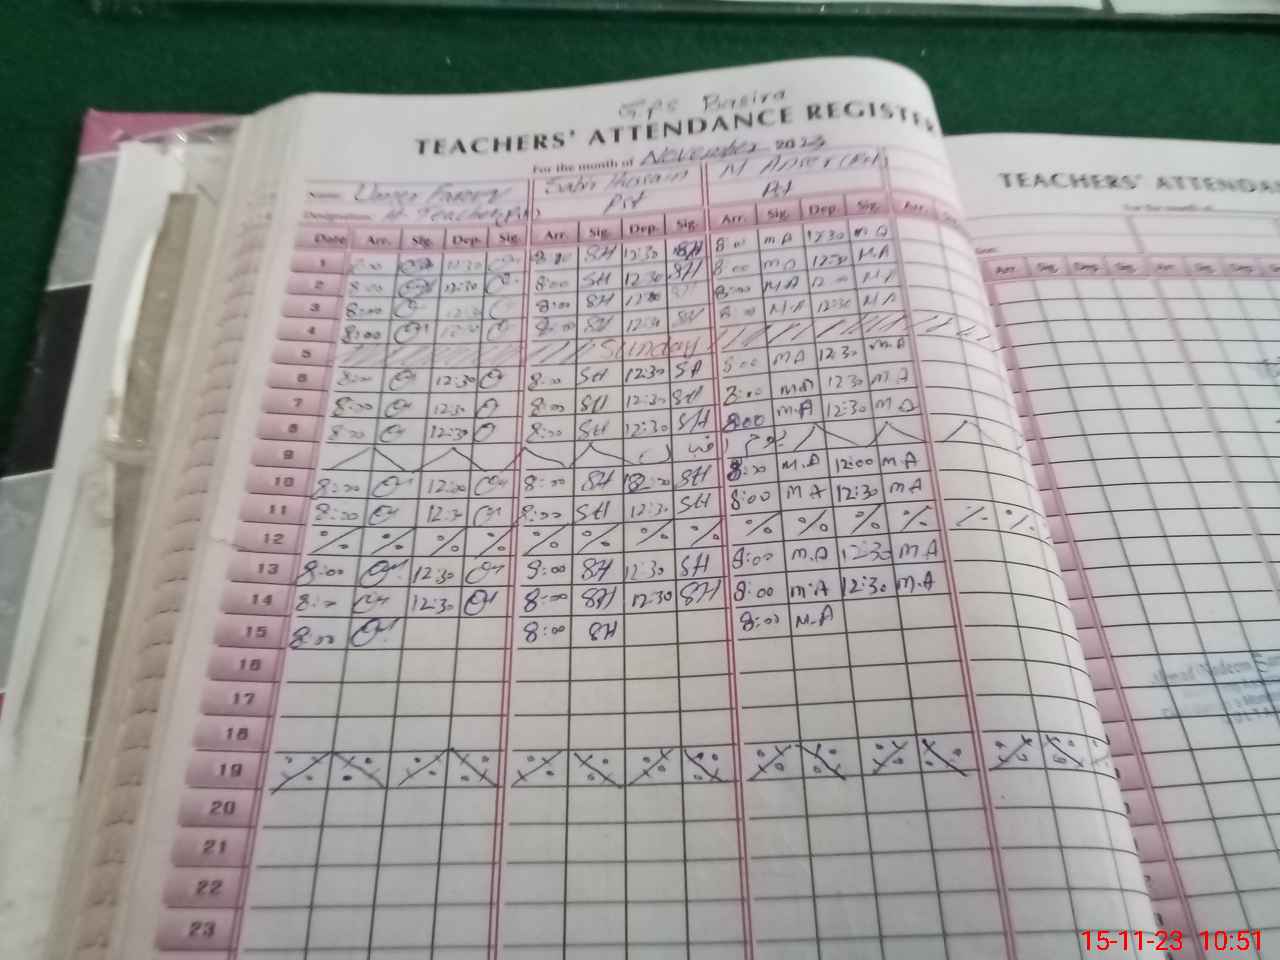 GPS Basira
TEACHERS' ATTENDANCE REGISTER
For the month of November 2023
Name Umer Farooq Sabir Hussain M Anser
Designation H. Teacher PST PST
Date Arr. Sig. Dep. Sig. Arr. Sig. Dep. Sig. Arr. Sig. Dep. Sig. Arr.
1 8:00 12:30 8:00 SH 12:30 SH 8:00 M.A 12:30 M.A
2 8:00 12:30 8:00 SH 12:30 SH 8:00 M.A 12:30 M.A
3 8:00 8:00 SH 8:00 M.A 12:00 M.A
4 8:00 12:30 8:00 SH 12:30 SH 8:00 M.A 12:30 M.A
5 Sunday
6 8:00 12:30 8:00 SH 12:30 SH 8:00 M.A 12:30 M.A
7 8:00 12:30 8:00 SH 12:30 SH 8:00 M.A 12:30 M.A
8 8:00 12:30 8:00 SH 12:30 SH 8:00 M.A 12:30 M.A
9
10 8:00 12:00 8:00 SH 12:00 SH 8:00 M.A 12:00 M.A
11 8:00 12:30 8:00 SH 12:30 SH 8:00 M.A 12:30 M.A
12
13 8:00 12:30 8:00 SH 12:30 SH 8:00 M.A 12:30 M.A
14 8:00 12:30 8:00 SH 12:30 SH 8:00 M.A 12:30 M.A
15 8:00 8:00 SH 8:00 M.A
16
17
18
19
20
21
22
23
TEACHERS' ATTENDA
For the month of
Arr. Sig. Dep. Sig. Arr. Sig. Dep.
15-11-23 10:51